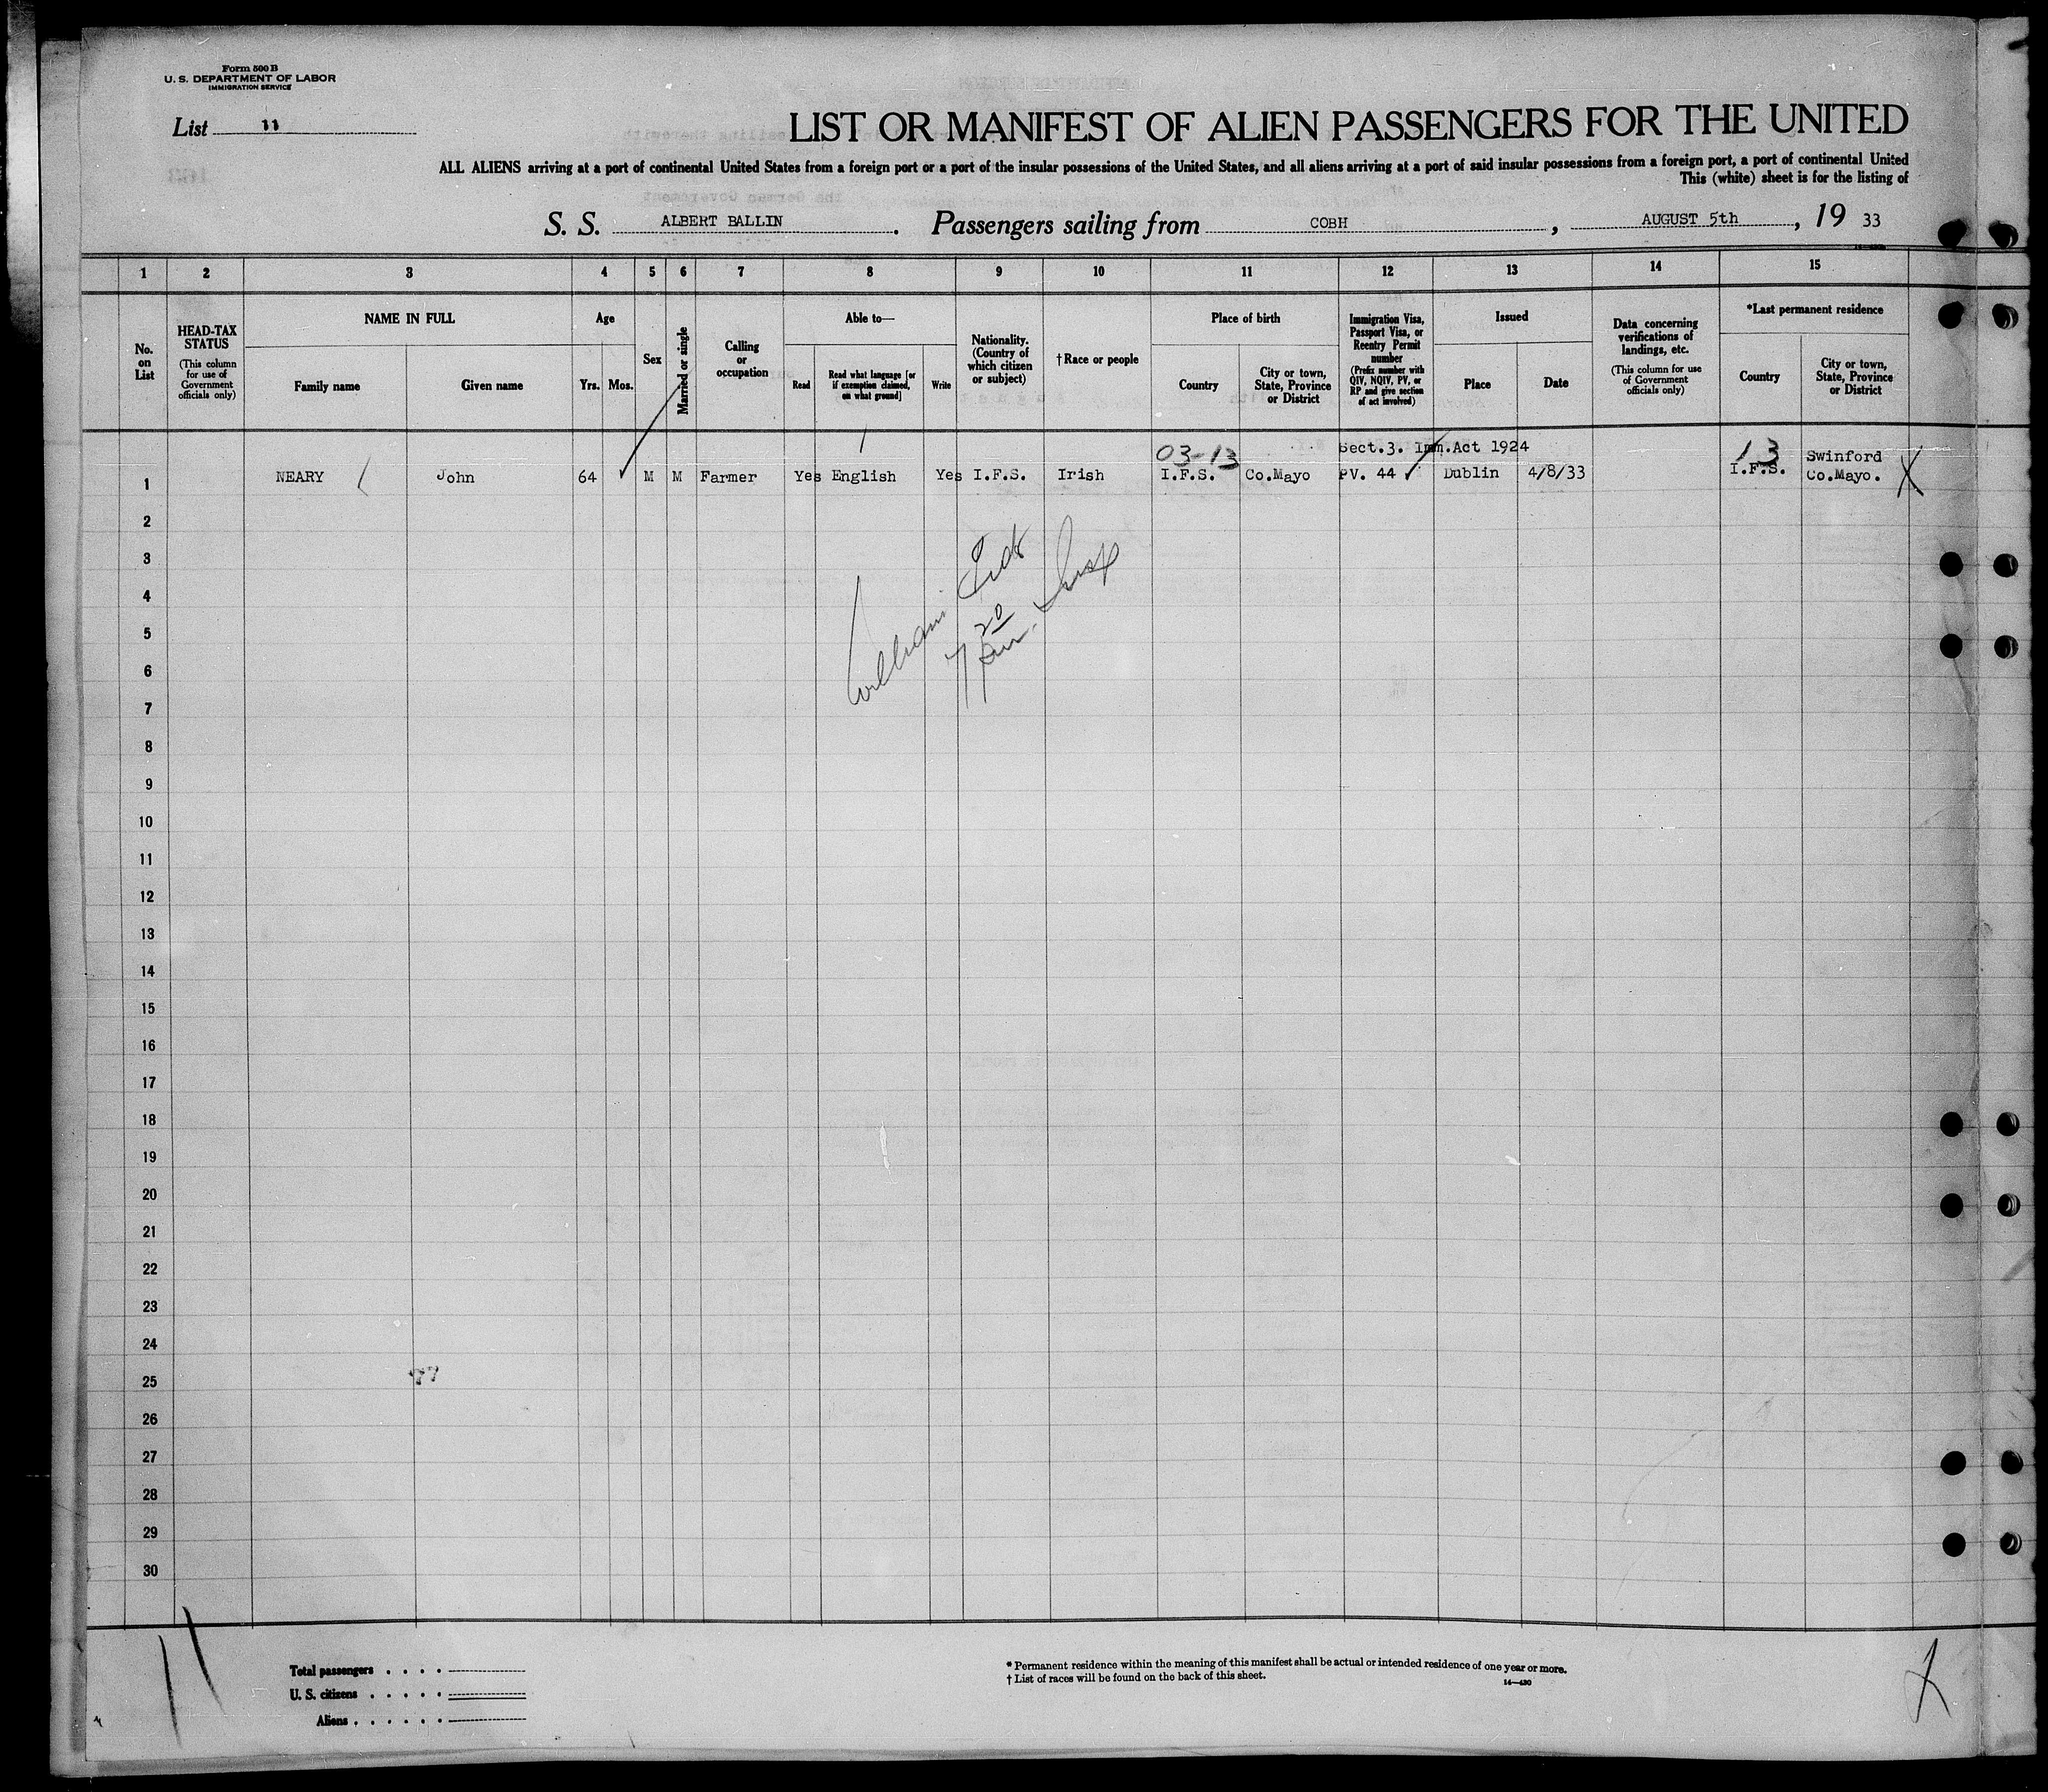 Form 500 B
U. S. DEPARTMENT OF LABOR
IMMIGRATION SERVICE
List 11
LIST OR MANIFEST OF ALIEN PASSENGERS FOR THE UNITED
ALL ALIENS arriving at a port of continental United States from a foreign port or a port of the insular possessions of the United States, and all aliens arriving at a port of said insular possessions from a foreign port, a port of continental United
This (white) sheet is for the listing of
S. S. ALBERT BALLIN. Passengers sailing from COBH, AUGUST 5th, 19 33
1 2 3 4 5 6 7 8 9 10 11 12 13 14 15
No. on List
HEAD-TAX STATUS
(This column for use of Government officials only)
NAME IN FULL
Family name
Given name
Age
Yrs. Mos.
Sex
Married or single
Calling or occupation
Able to—
Read
Read what language [or if exemption claimed, on what ground]
Write
Nationality. (Country of which citizen or subject)
†Race or people
Place of birth
Country
City or town, State, Province or District
Immigration Visa, Passport Visa, or Reentry Permit number
(Prefix number with QIV, NQIV, PV, or RP and give section of act involved)
Issued
Place
Date
Data concerning verifications of landings, etc.
(This column for use of Government officials only)
*Last permanent residence
Country
City or town, State, Province or District
03-13 Sect.3. Imm.Act 1924 13 Swinford
1 NEARY John 64 M M Farmer Yes English Yes I.F.S. Irish I.F.S. Co.Mayo PV. 44 Dublin 4/8/33 I.F.S. Co.Mayo. X
2
3
4
5
6
7
8
9
10
11
12
13
14
15
16
17
18
19
20
21
22
23
24
25
26
27
28
29
30
William
20
11
Total passengers . . . .
U. S. citizens . . . . .
Aliens . . . . . .
* Permanent residence within the meaning of this manifest shall be actual or intended residence of one year or more.
† List of races will be found on the back of this sheet.
14—430